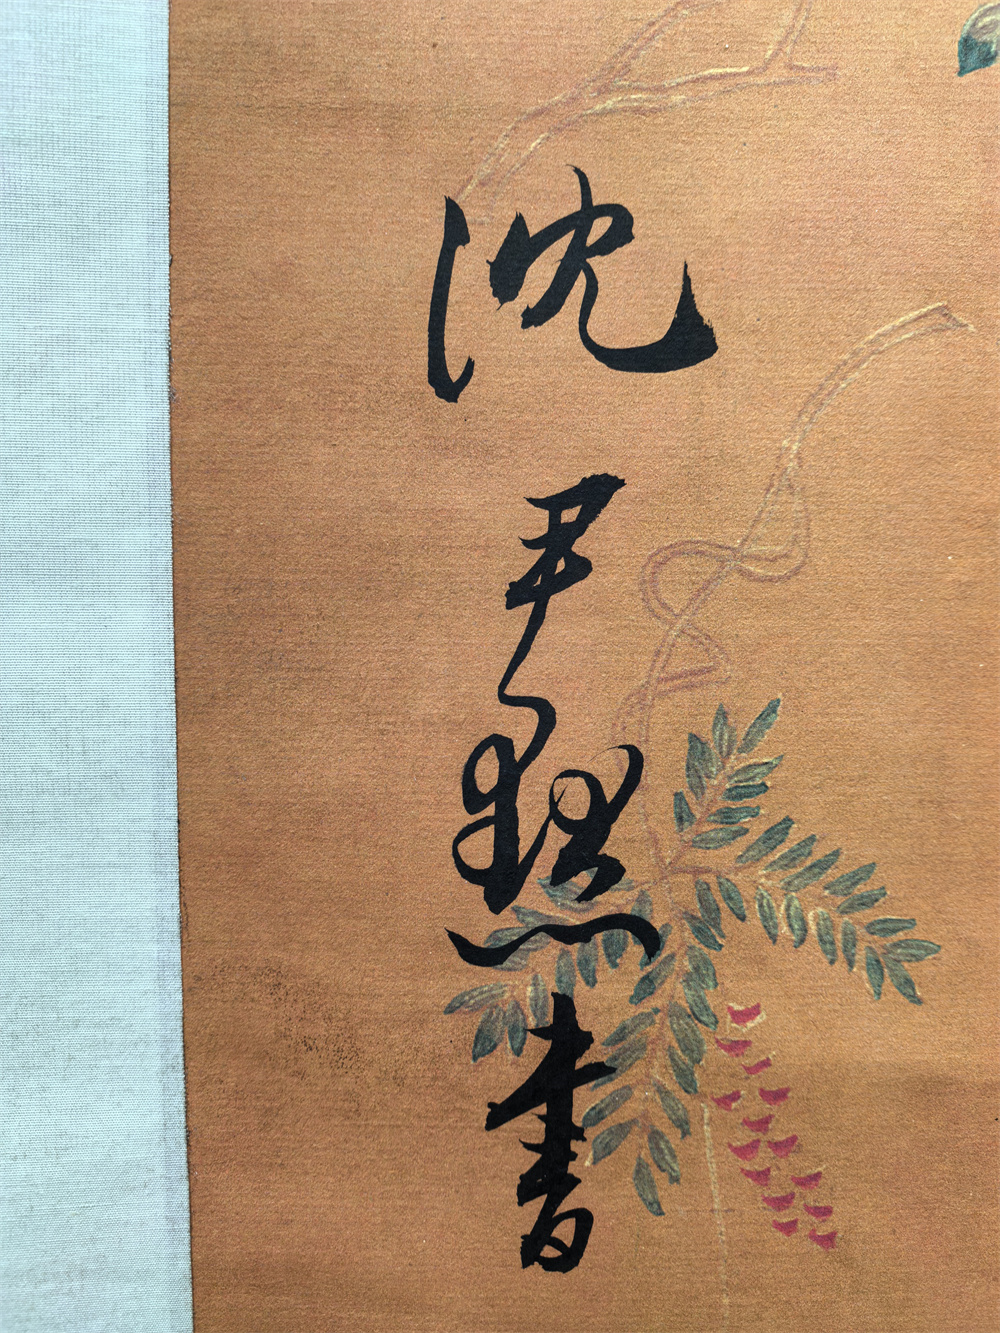 沈尹默書